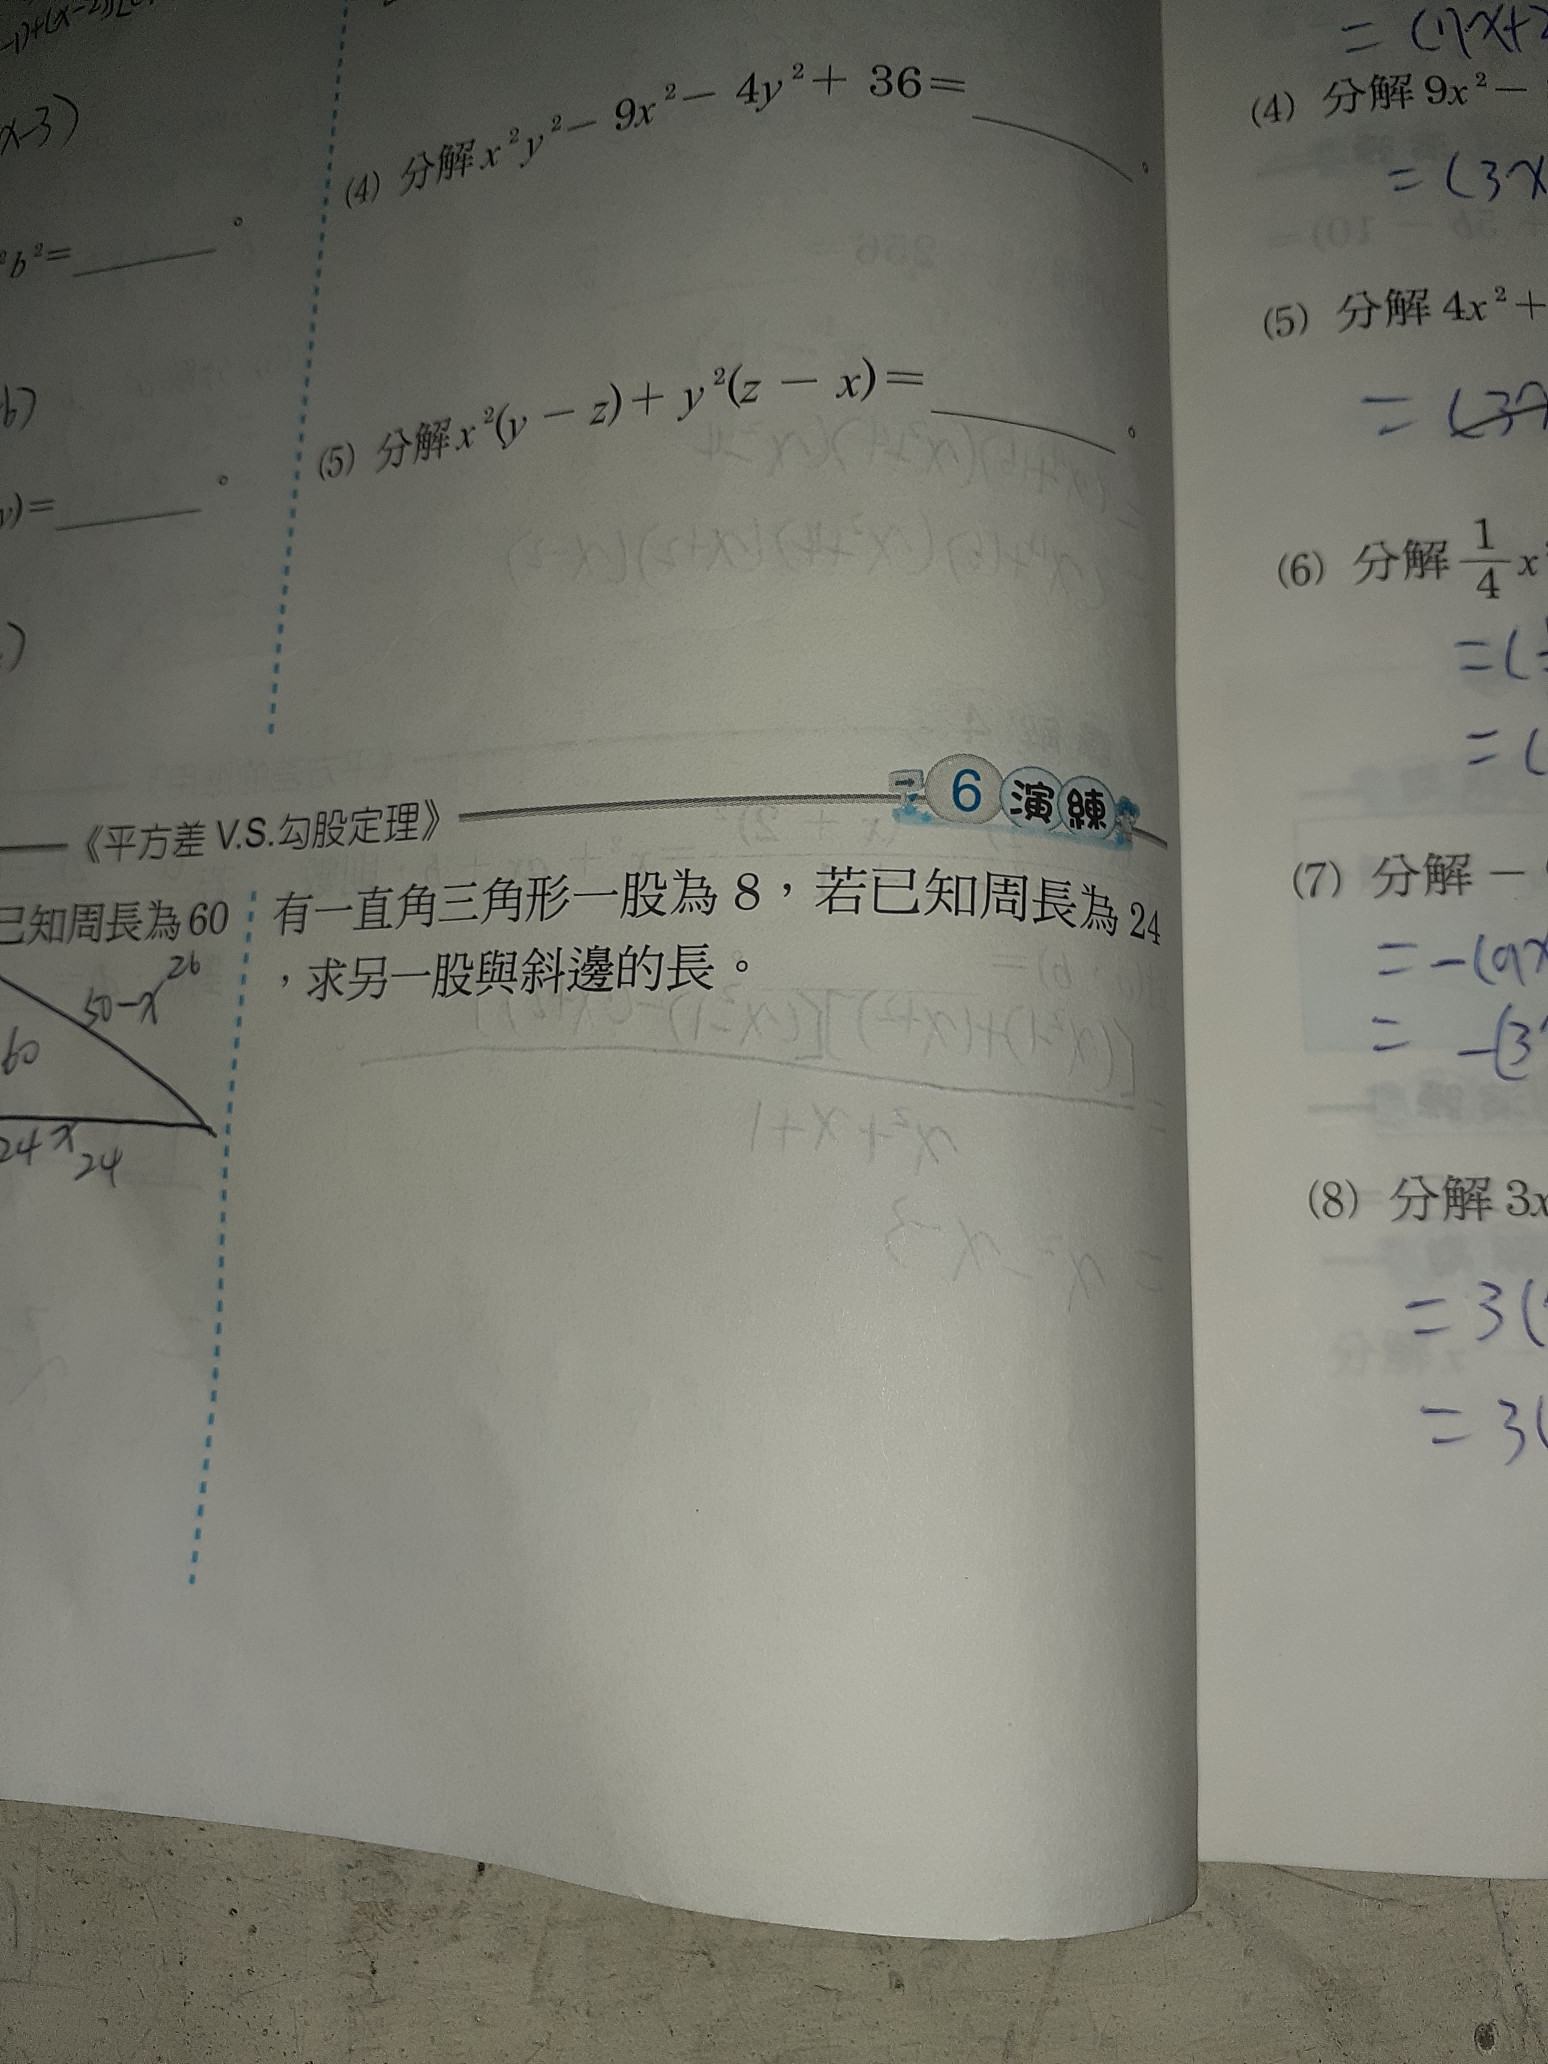 x-3)
(4) 分解x²y²－9x²－4y²＋36＝______。
²b²＝______。
(5) 分解x²(y－z)＋y²(z－x)＝______。
)＝______。
《平方差 V.S.勾股定理》
6 演練
已知周長為60
有一直角三角形一股為 8，若已知周長為 24
，求另一股與斜邊的長。
50-x 26
60
24 x 24
(4) 分解 9x²－
= (3x
(5) 分解 4x²＋
(6) 分解 1/4 x
= (
= (
(7) 分解－
= -(9x
= -(3
(8) 分解 3x
= 3(
= 3(